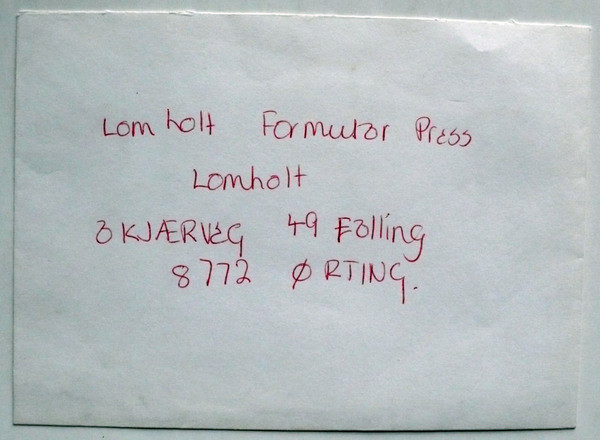 Lomholt Formular Press
Lomholt
ƷKJÆRVEG 49 Falling
8772 ØRTING.